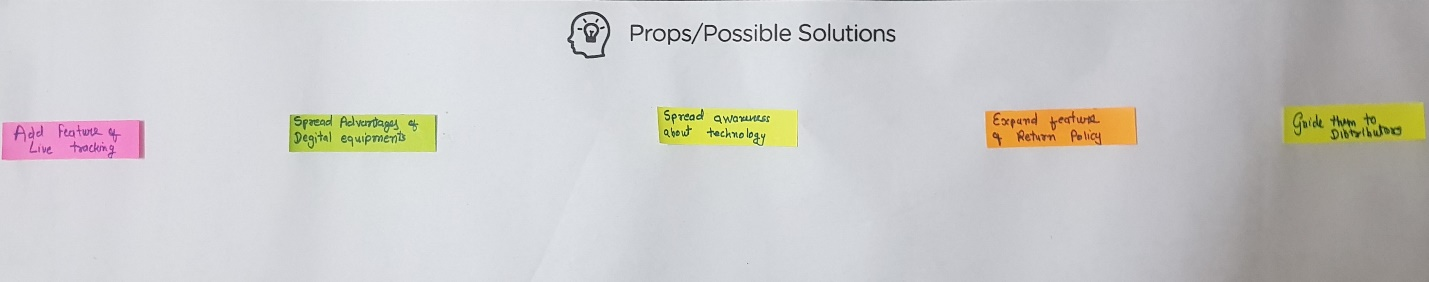 Props/Possible Solutions
Add Feature of
Live tracking
Spread Advantages of
Degital equipments
Spread awareness
about technology
Expand feature
of Return Policy
Guide them to
Distributors